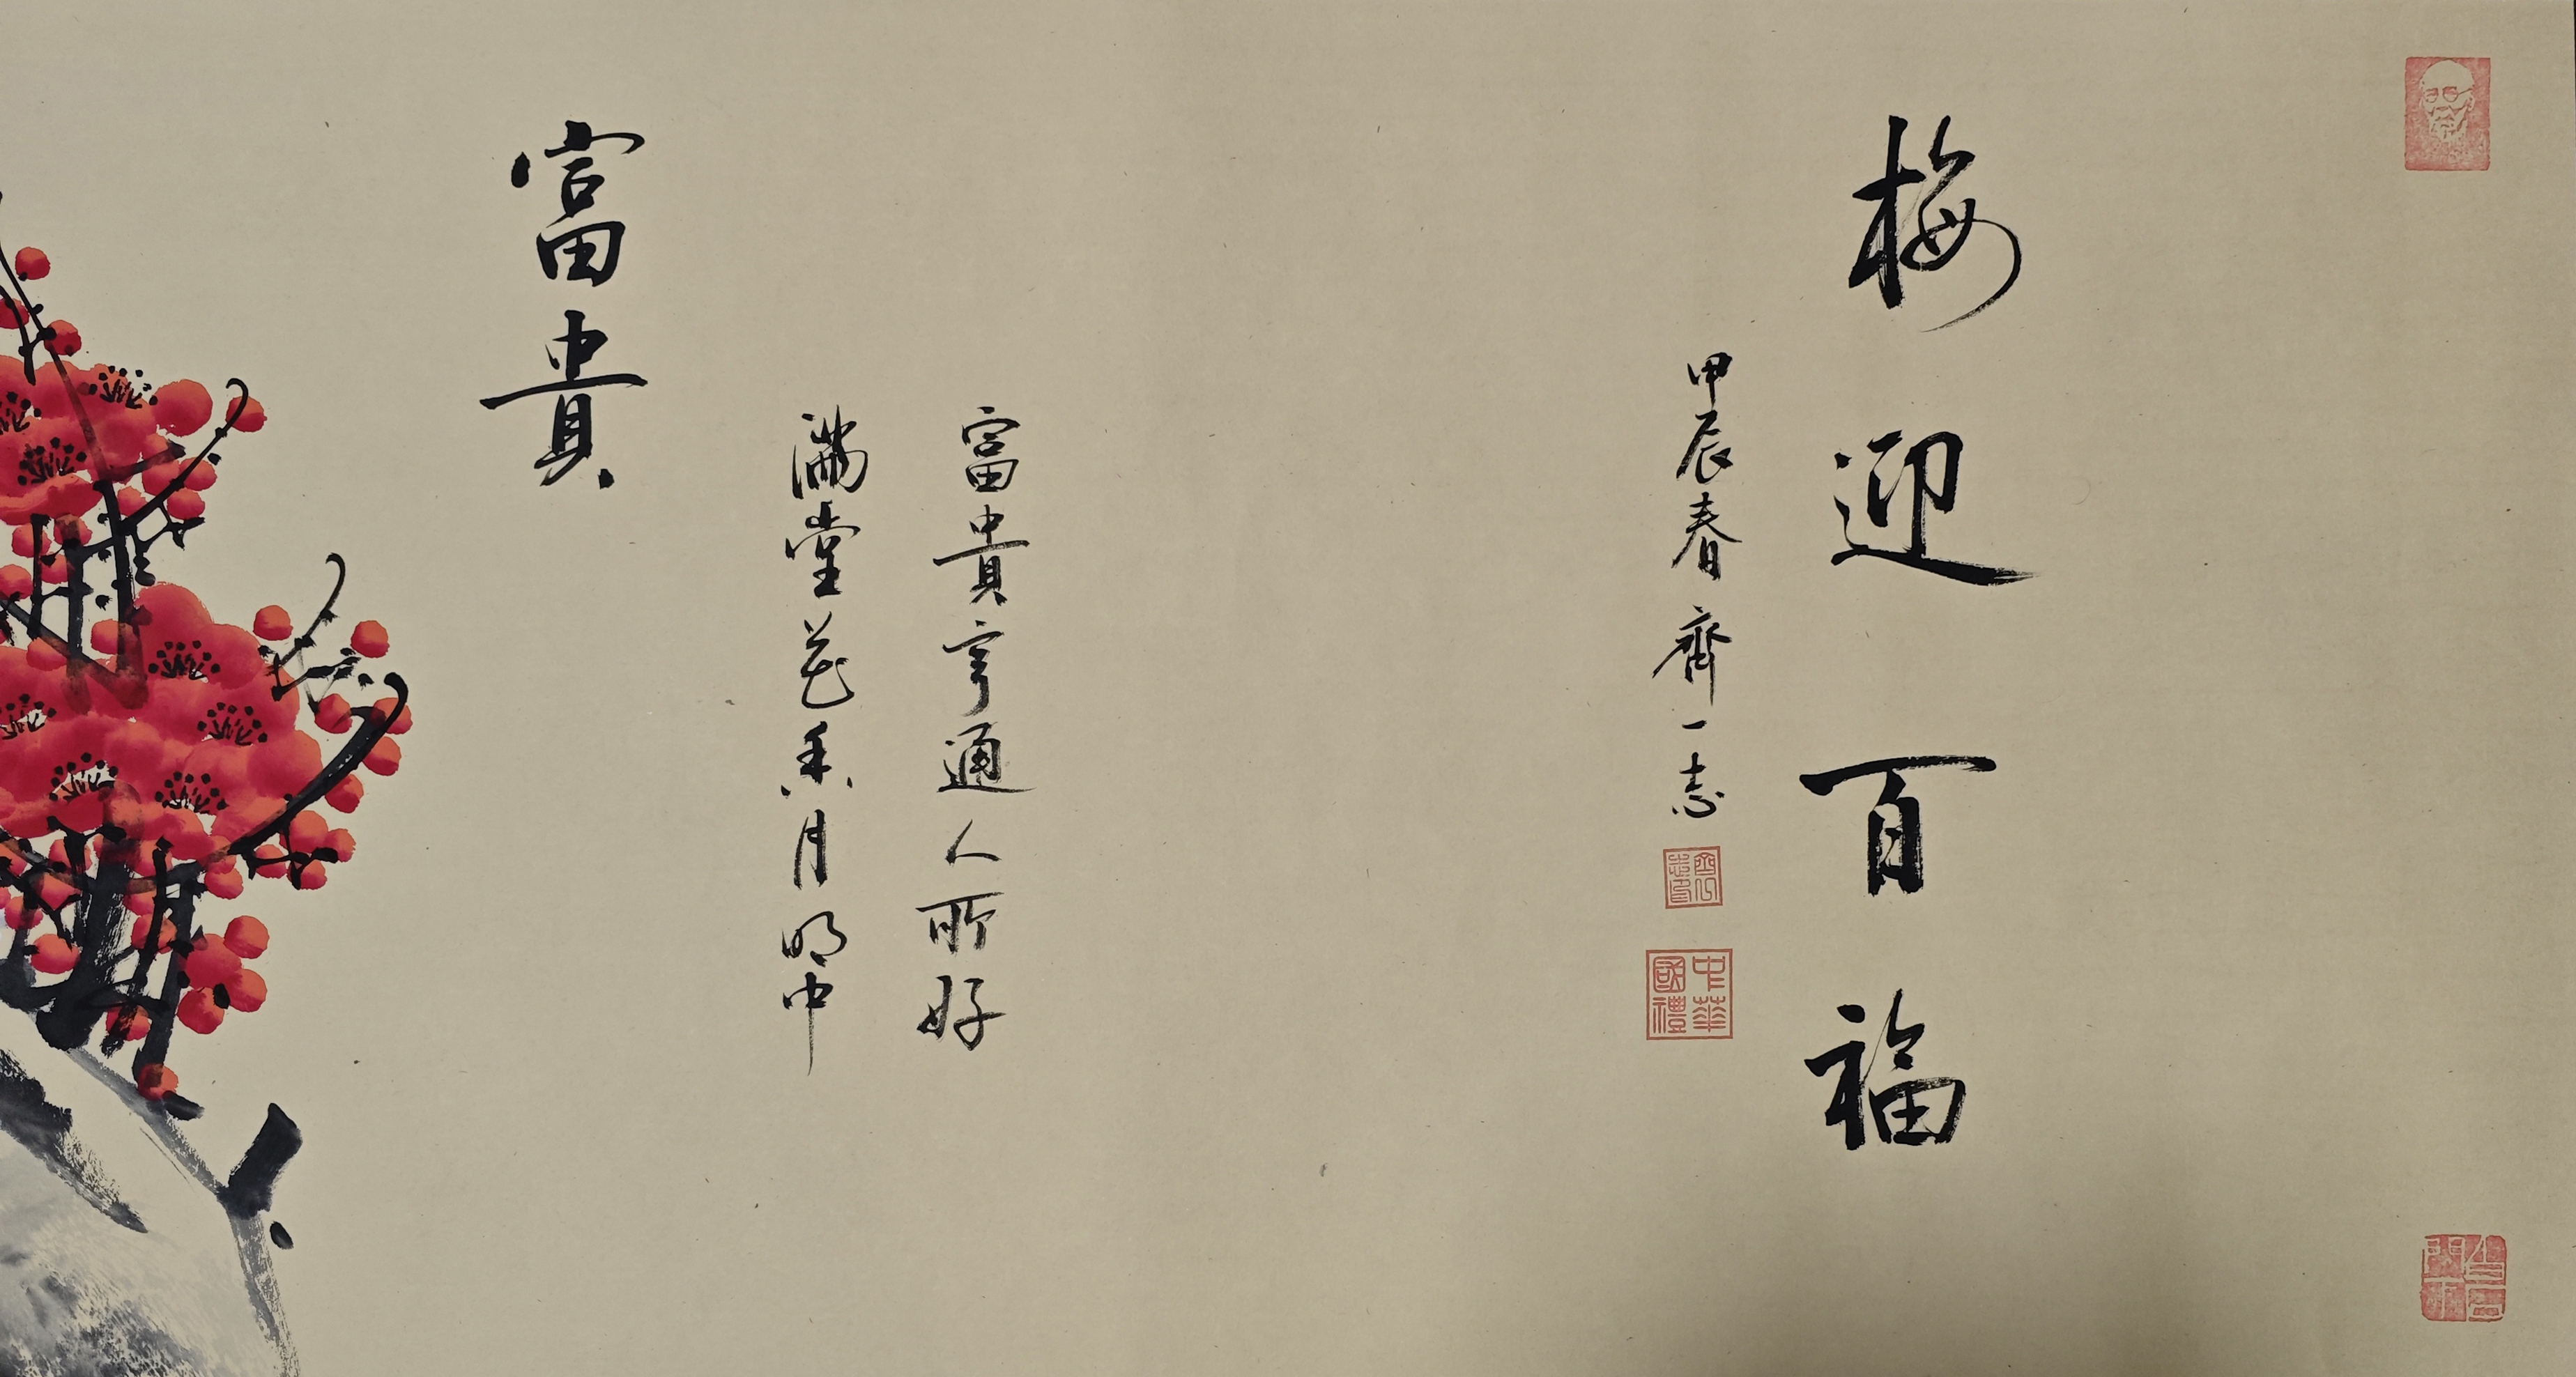 梅迎百福
甲辰春齊一志
中華國禮
富貴亨通人所好
滿堂花香月明中
富貴